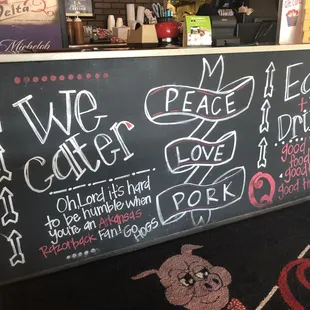 Delta
Michelob
We
Cater
Oh Lord it's hard
to be humble when
you're an Arkansas
Razorback Fan! Go
HOGS
PEACE
LOVE
PORK
Drin
good
food
good
good